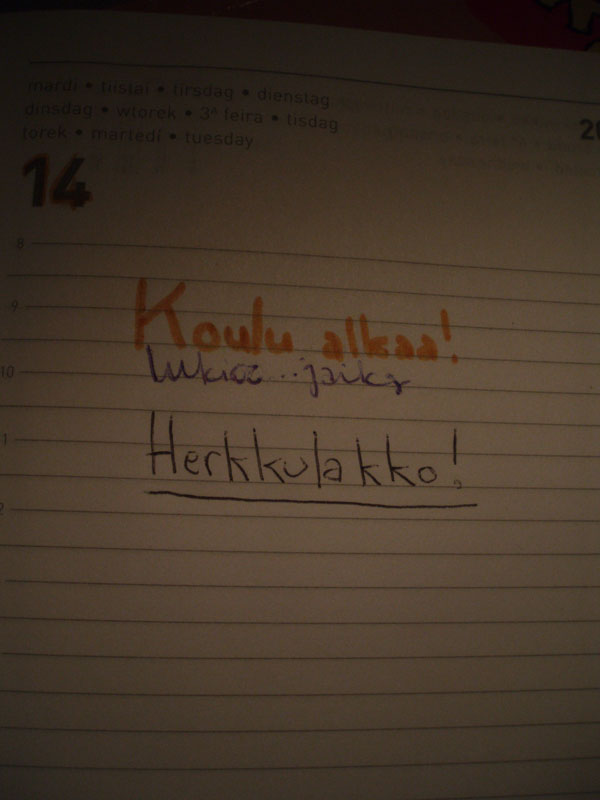 mardi • tiistai • tirsdag • dienstag
dinsdag • wtorek • 3ª feira • tisdag
torek • martedí • tuesday
20
14
8
9
Koulu alkaa!
10
Herkkulakko!